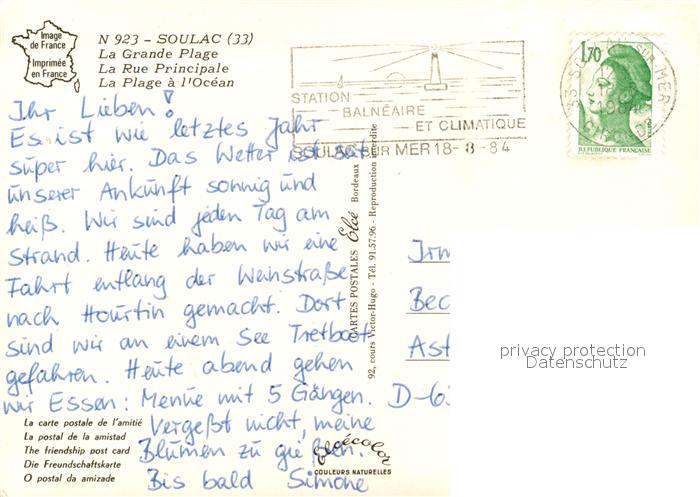 Image
de France
Imprimée
en France
N 923 - SOULAC (33)
La Grande Plage
La Rue Principale
La Plage à l'Océan
STATION
BALNÉAIRE
ET CLIMATIQUE
SOULAC SUR MER 18-8-84
1,70
REPUBLIQUE FRANÇAISE
Ihr Lieben!
Es ist wie letztes Jahr
super hier. Das Wetter ist seit
unserer Ankunft sonnig und
heiß. Wir sind jeden Tag am
Strand. Heute haben wir eine
Fahrt entlang der Weinstraße
nach Hourtin gemacht. Dort
sind wir an einem See Tretboot
gefahren. Heute abend gehen
wir Essen: Menue mit 5 Gängen.
Vergeßt nicht, meine
Blumen zu gießen.
Bis bald Simone
La carte postale de l'amitié
La postal de la amistad
The friendship post card
Die Freundschaftskarte
O postal da amizade
CARTES POSTALES Elcé Bordeaux
92, cours Victor-Hugo - Tél. 91.57.96 - Reproduction interdite
elcécolor
COULEURS NATURELLES
Irm
Bec
Ast
D-6
privacy protection
Datenschutz